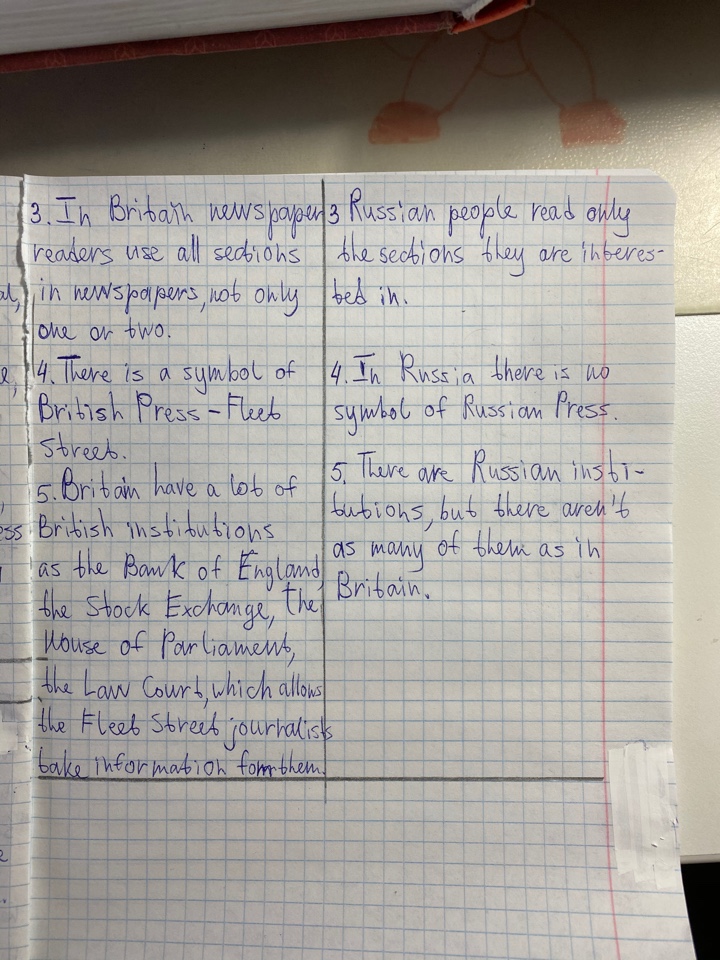 3. In Britain newspaper
readers use all sections
in newspapers, not only
one or two.
4. There is a symbol of
British Press – Fleet
Street.
5. Britain have a lot of
British institutions
as the Bank of England,
the Stock Exchange, the
House of Parliament,
the Law Court, which allows
the Fleet Street journalists
take information form them.
3 Russian people read only
the sections they are interes-
ted in.
4. In Russia there is no
symbol of Russian Press.
5. There are Russian insti-
tutions, but there aren't
as many of them as in
Britain.